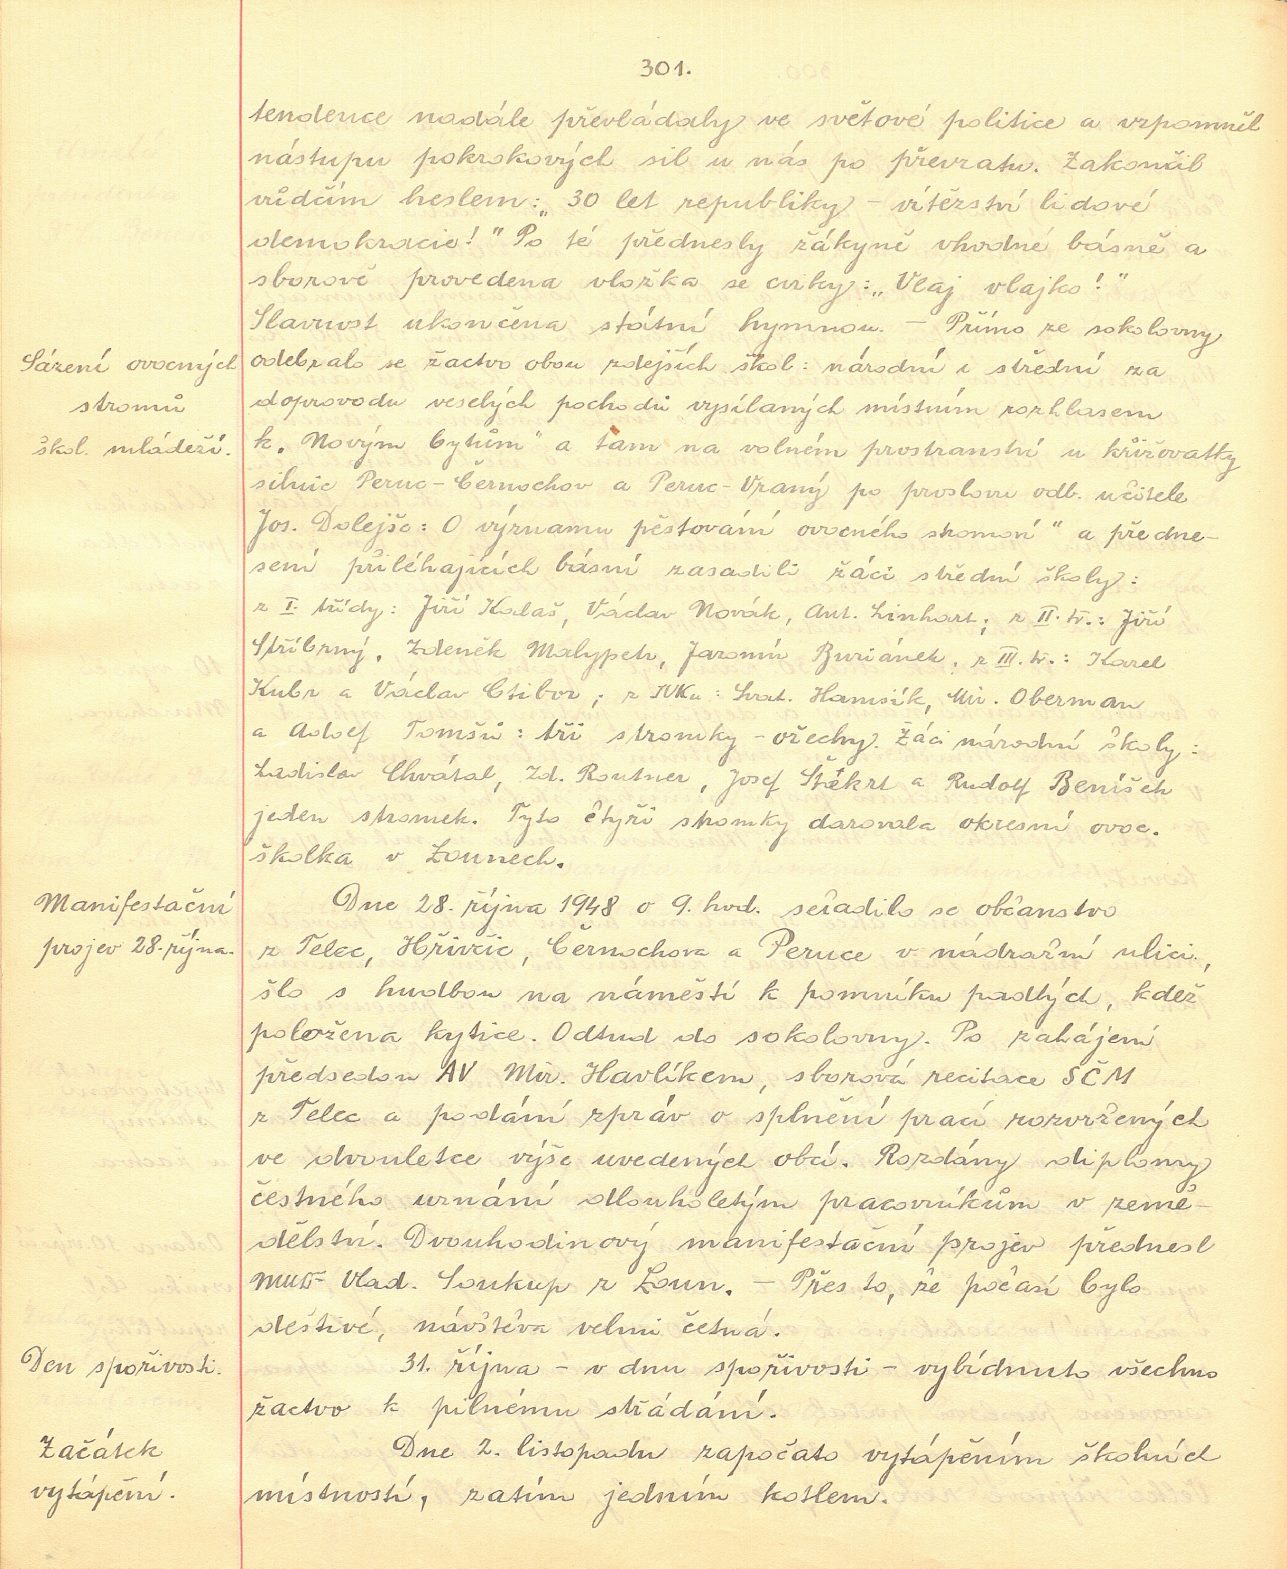 301.
tendence nadále převládaly ve světové politice a vzpomněl
nástupu pokrokových sil u nás po převratu. Zakončil
vůdčím heslem: „30 let republiky – vítězství lidové
demokracie!" Po té přednesly žákyně vhodné básně a
sborově provedena vložka se cviky: „Vlaj vlajko!"
Slavnost ukončena státní hymnou. – Přímo ze sokolovny
Sázení ovocných
stromů
škol. mládeží.
odebralo se žactvo obou zdejších škol: národní i střední za
doprovodu veselých pochodů vysílaných místním rozhlasem
k „Novým bytům" a tam na volném prostranství u křižovatky
silnic Peruc-Černochov a Peruc-Vraný po proslovu odb. učitele
Jos. Dolejše: O významu pěstování ovocného stromoví" a předne-
sení přiléhajících básní zasadili žáci střední školy:
z I. třídy: Jiří Kalaš, Václav Novák, Ant. Linhart; z II. tř.: Jiří
Stříbrný, Zdeněk Malypetr, Jaromír Buriánek, z III. tř.: Karel
Kubr a Václav Ctibor; z IVKu: Svat. Hamsík, Mir. Oberman
a Adolf Tomšů: tři stromky – ořechy. Žáci národní školy:
Ladislav Chvátal, Zd. Rautner, Josef Štěkrt a Rudolf Beníšek
jeden stromek. Tyto čtyři stromky darovala okresní ovoc.
školka v Lounech.
Manifestační
projev 28. října.
Dne 28. října 1948 o 9. hod. seřadilo se občanstvo
z Telec, Hřivčic, Černochova a Peruce v nádražní ulici,
šlo s hudbou na náměstí k pomníku padlých, kdež
položena kytice. Odtud do sokolovny. Po zahájení
předsedou AV Mir. Havlíkem, sborová recitace SČM
z Telec a podání zpráv o splnění prací rozvržených
ve dvouletce výše uvedených obcí. Rozdány diplomy
čestného uznání dlouholetým pracovníkům v země-
dělství. Dvouhodinový manifestační projev přednesl
Vlad. Soukup z Loun. – Přes to, že počasí bylo
deštivé, návštěva velmi četná.
Den spořivosti.
31. října – v dnu spořivosti – vybídnuto všechno
žactvo k pilnému střádání.
Začátek
vytápění.
Dne 2. listopadu započato vytápěním školních
místností, zatím jedním kotlem.